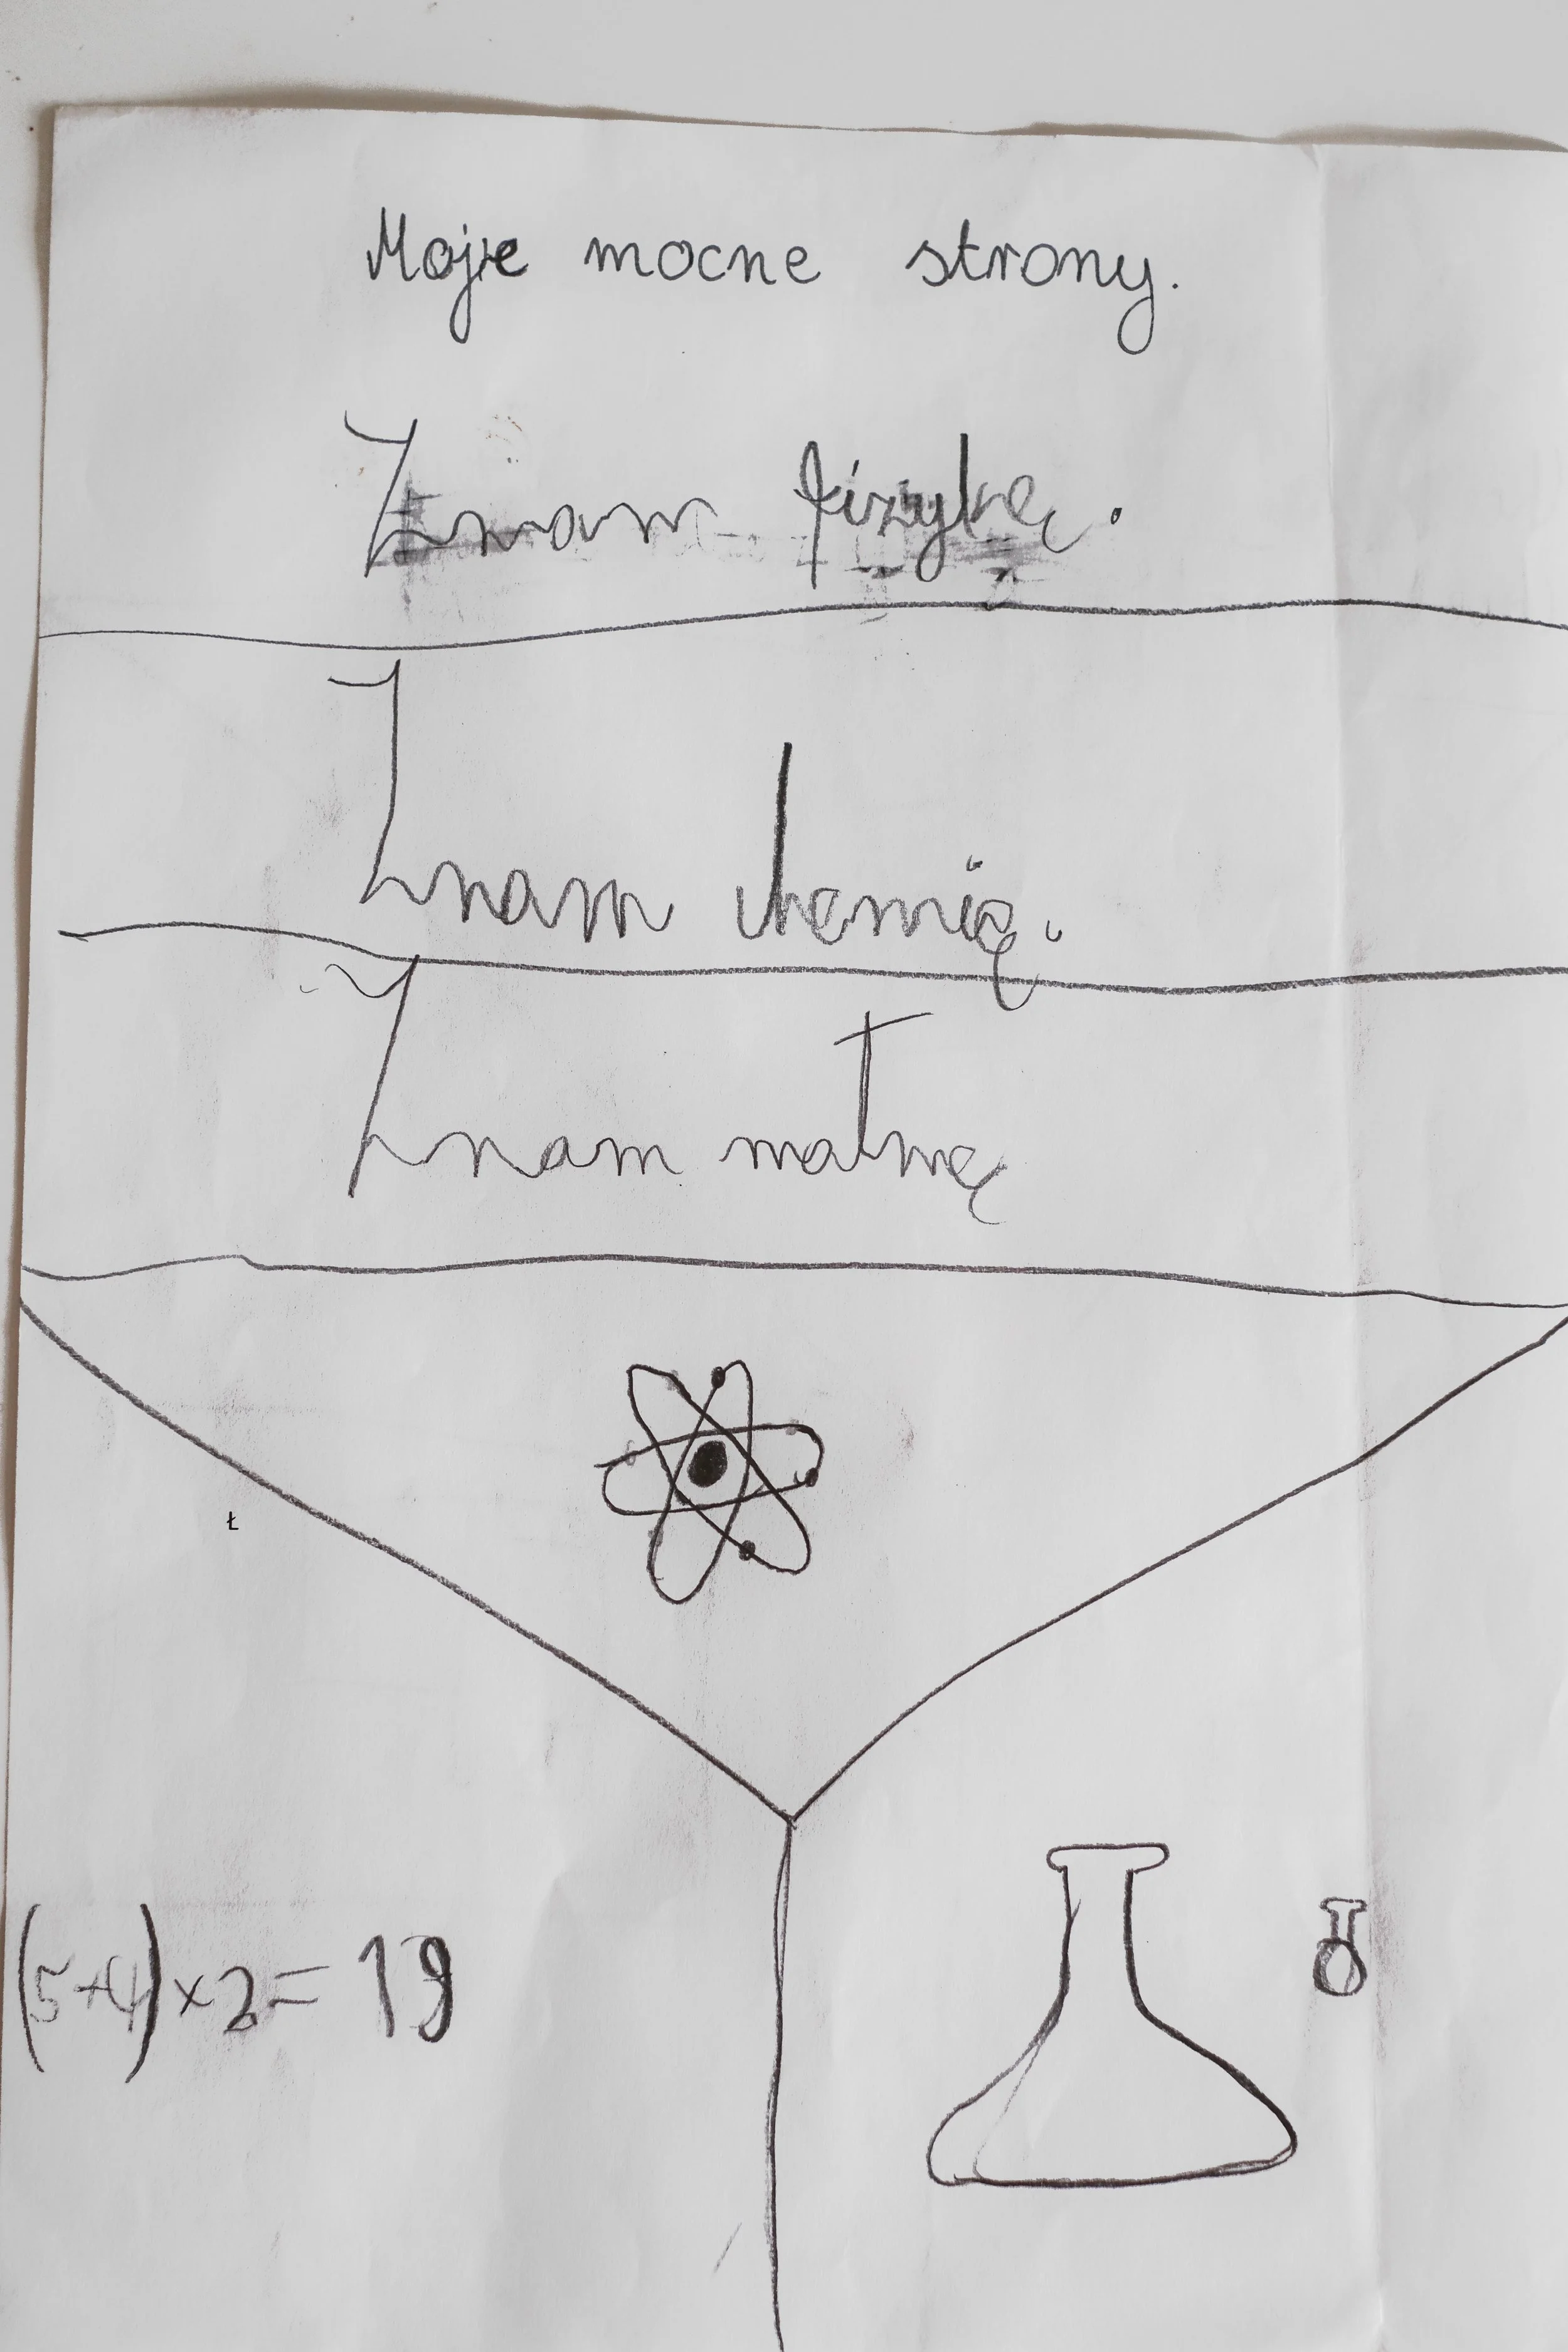 Moje mocne strony.
Znam fizykę.
Znam chemię.
Znam matmę
Ł
(5+4)×2= 19